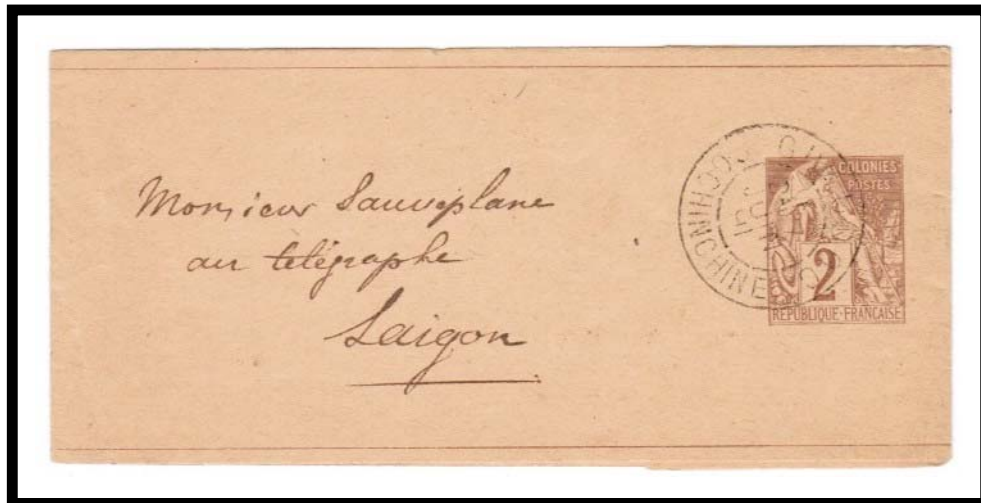 Monsieur Sauveplane
au télégraphe
Saigon
COCHINCHINE
COLONIES
POSTES
2
REPUBLIQUE·FRANÇAISE